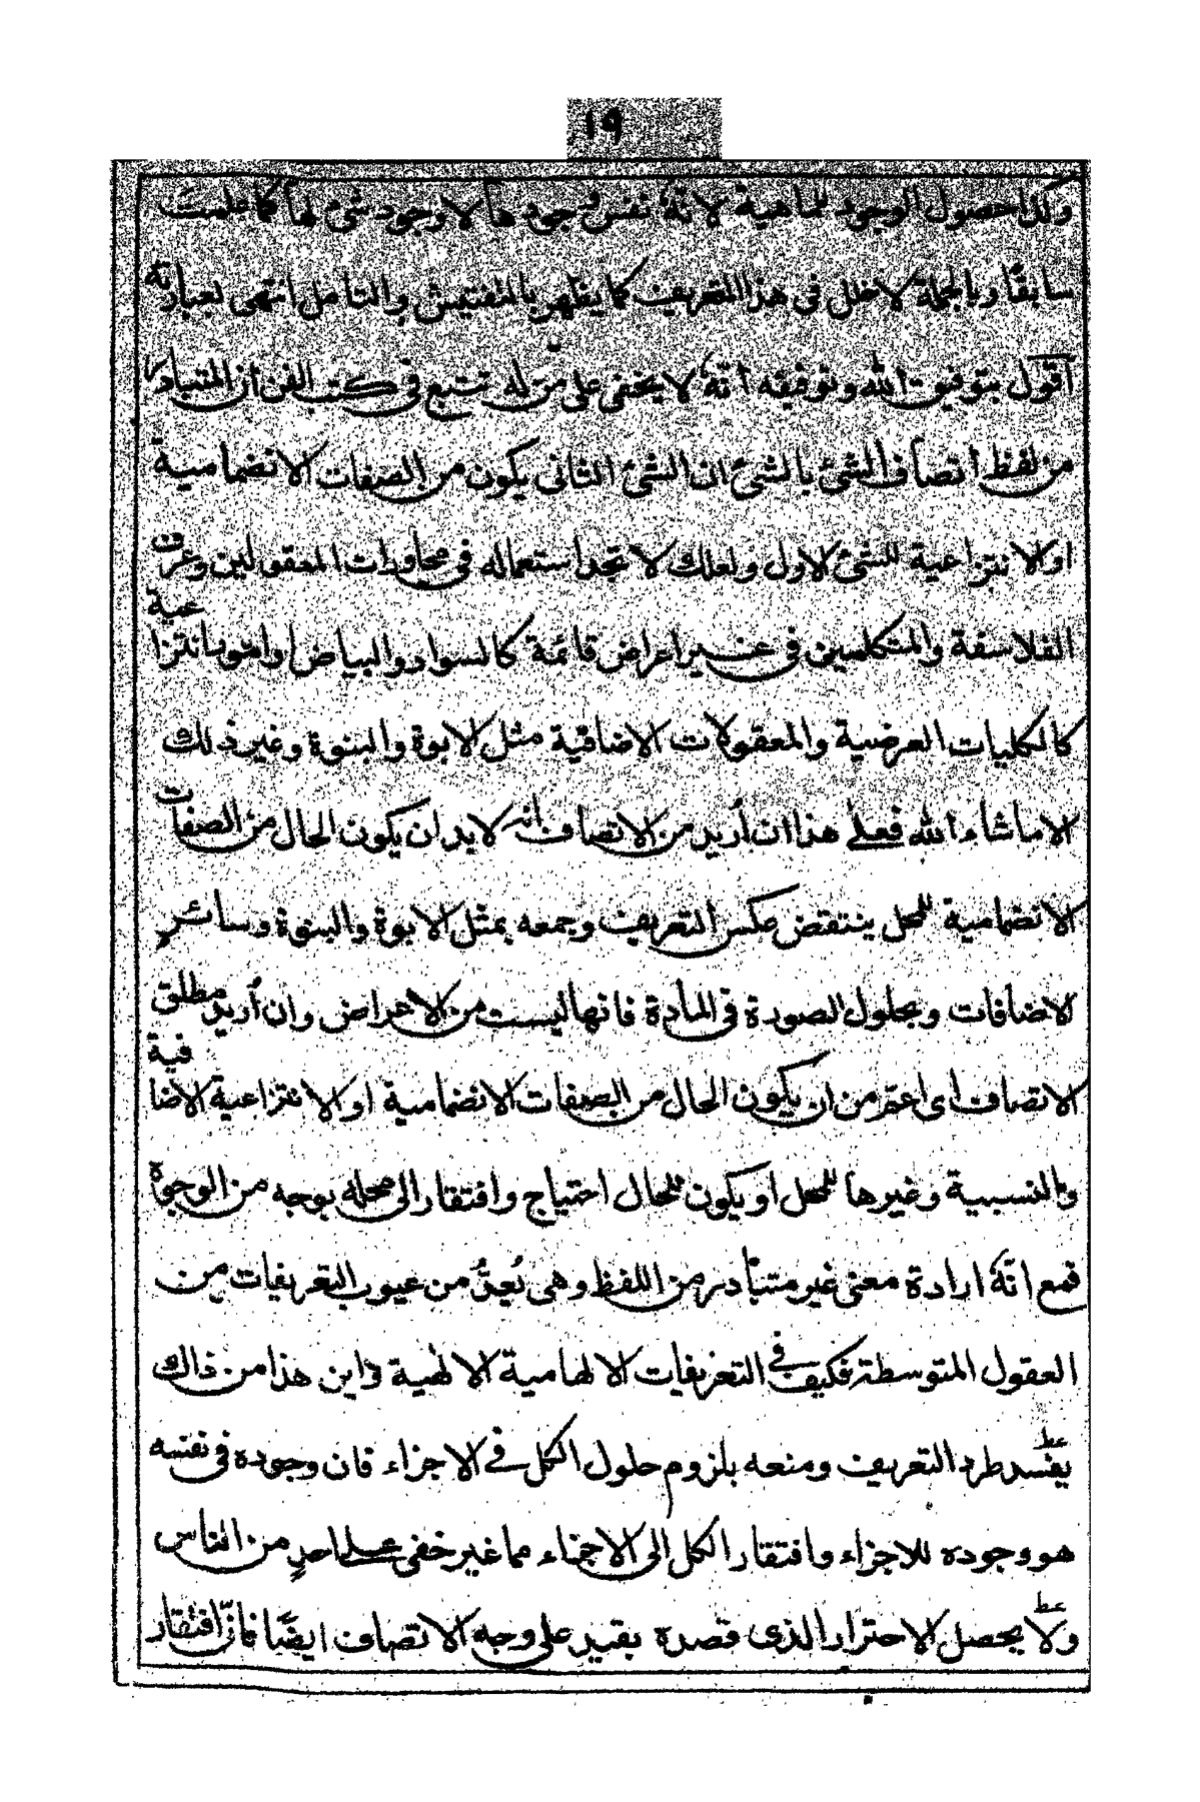 ١٩
وكذا حصول الوجود للماهية لانّه نفس وجودها لا وجود شئ لها كما علمت
سابقًا وبالجملة لا خلل فى هذا التعريف كما يظهر بالتفتيش والتأمل انتهى بعبارته
اقول بتوفيق الله وتوفيقه انّه لا يخفى على من له تتبع فى كتب الفن ان المتبادر
من لفظ اتصاف الشئ بالشئ ان الشئ الثانى يكون من الصفات الانضمامية
او الانتزاعية للشئ الاول ولعلك لا تجد استعماله فى محاورات المعقولين وعرف
الفلاسفة والمتكلمين فى غير اعراض قائمة كالسواد والبياض او امور انتزاعية
كالكليات العرضية والمعقولات الاضافية مثل الابوة والبنوة وغير ذلك
الا ما شاء الله فعلى هذا ان أريد من الاتصاف انه لا بد ان يكون الحال من الصفات
الانضمامية للمحل ينتقض عكس التعريف وجمعه بمثل الابوة والبنوة وسائر
الاضافات وبحلول الصورة فى المادة فانها ليست من الاعراض وان أريد مطلق
الاتصاف اى اعم من ان يكون الحال من الصفات الانضمامية او الانتزاعية الاضافية
والنسبية وغيرها للمحل او يكون للحال احتياج وافتقار الى محله بوجه من الوجوه
فمع انّه ارادة معنى غير متبادر من اللفظ وهى يُعدُّ من عيوب التعريفات من
العقول المتوسطة فكيف فى التعريفات الالهامية الالهية واين هذا من ذاك
يفسد طرد التعريف ومنعه بلزوم حلول الكل فى الاجزاء فان وجوده فى نفسه
هو وجوده للاجزاء وافتقار الكل الى الاجزاء مما غير خفى على احدٍ من الناس
ولا يحصل الاحتراز الذى قصده بقيد على وجه الاتصاف ايضًا فانّ افتقار